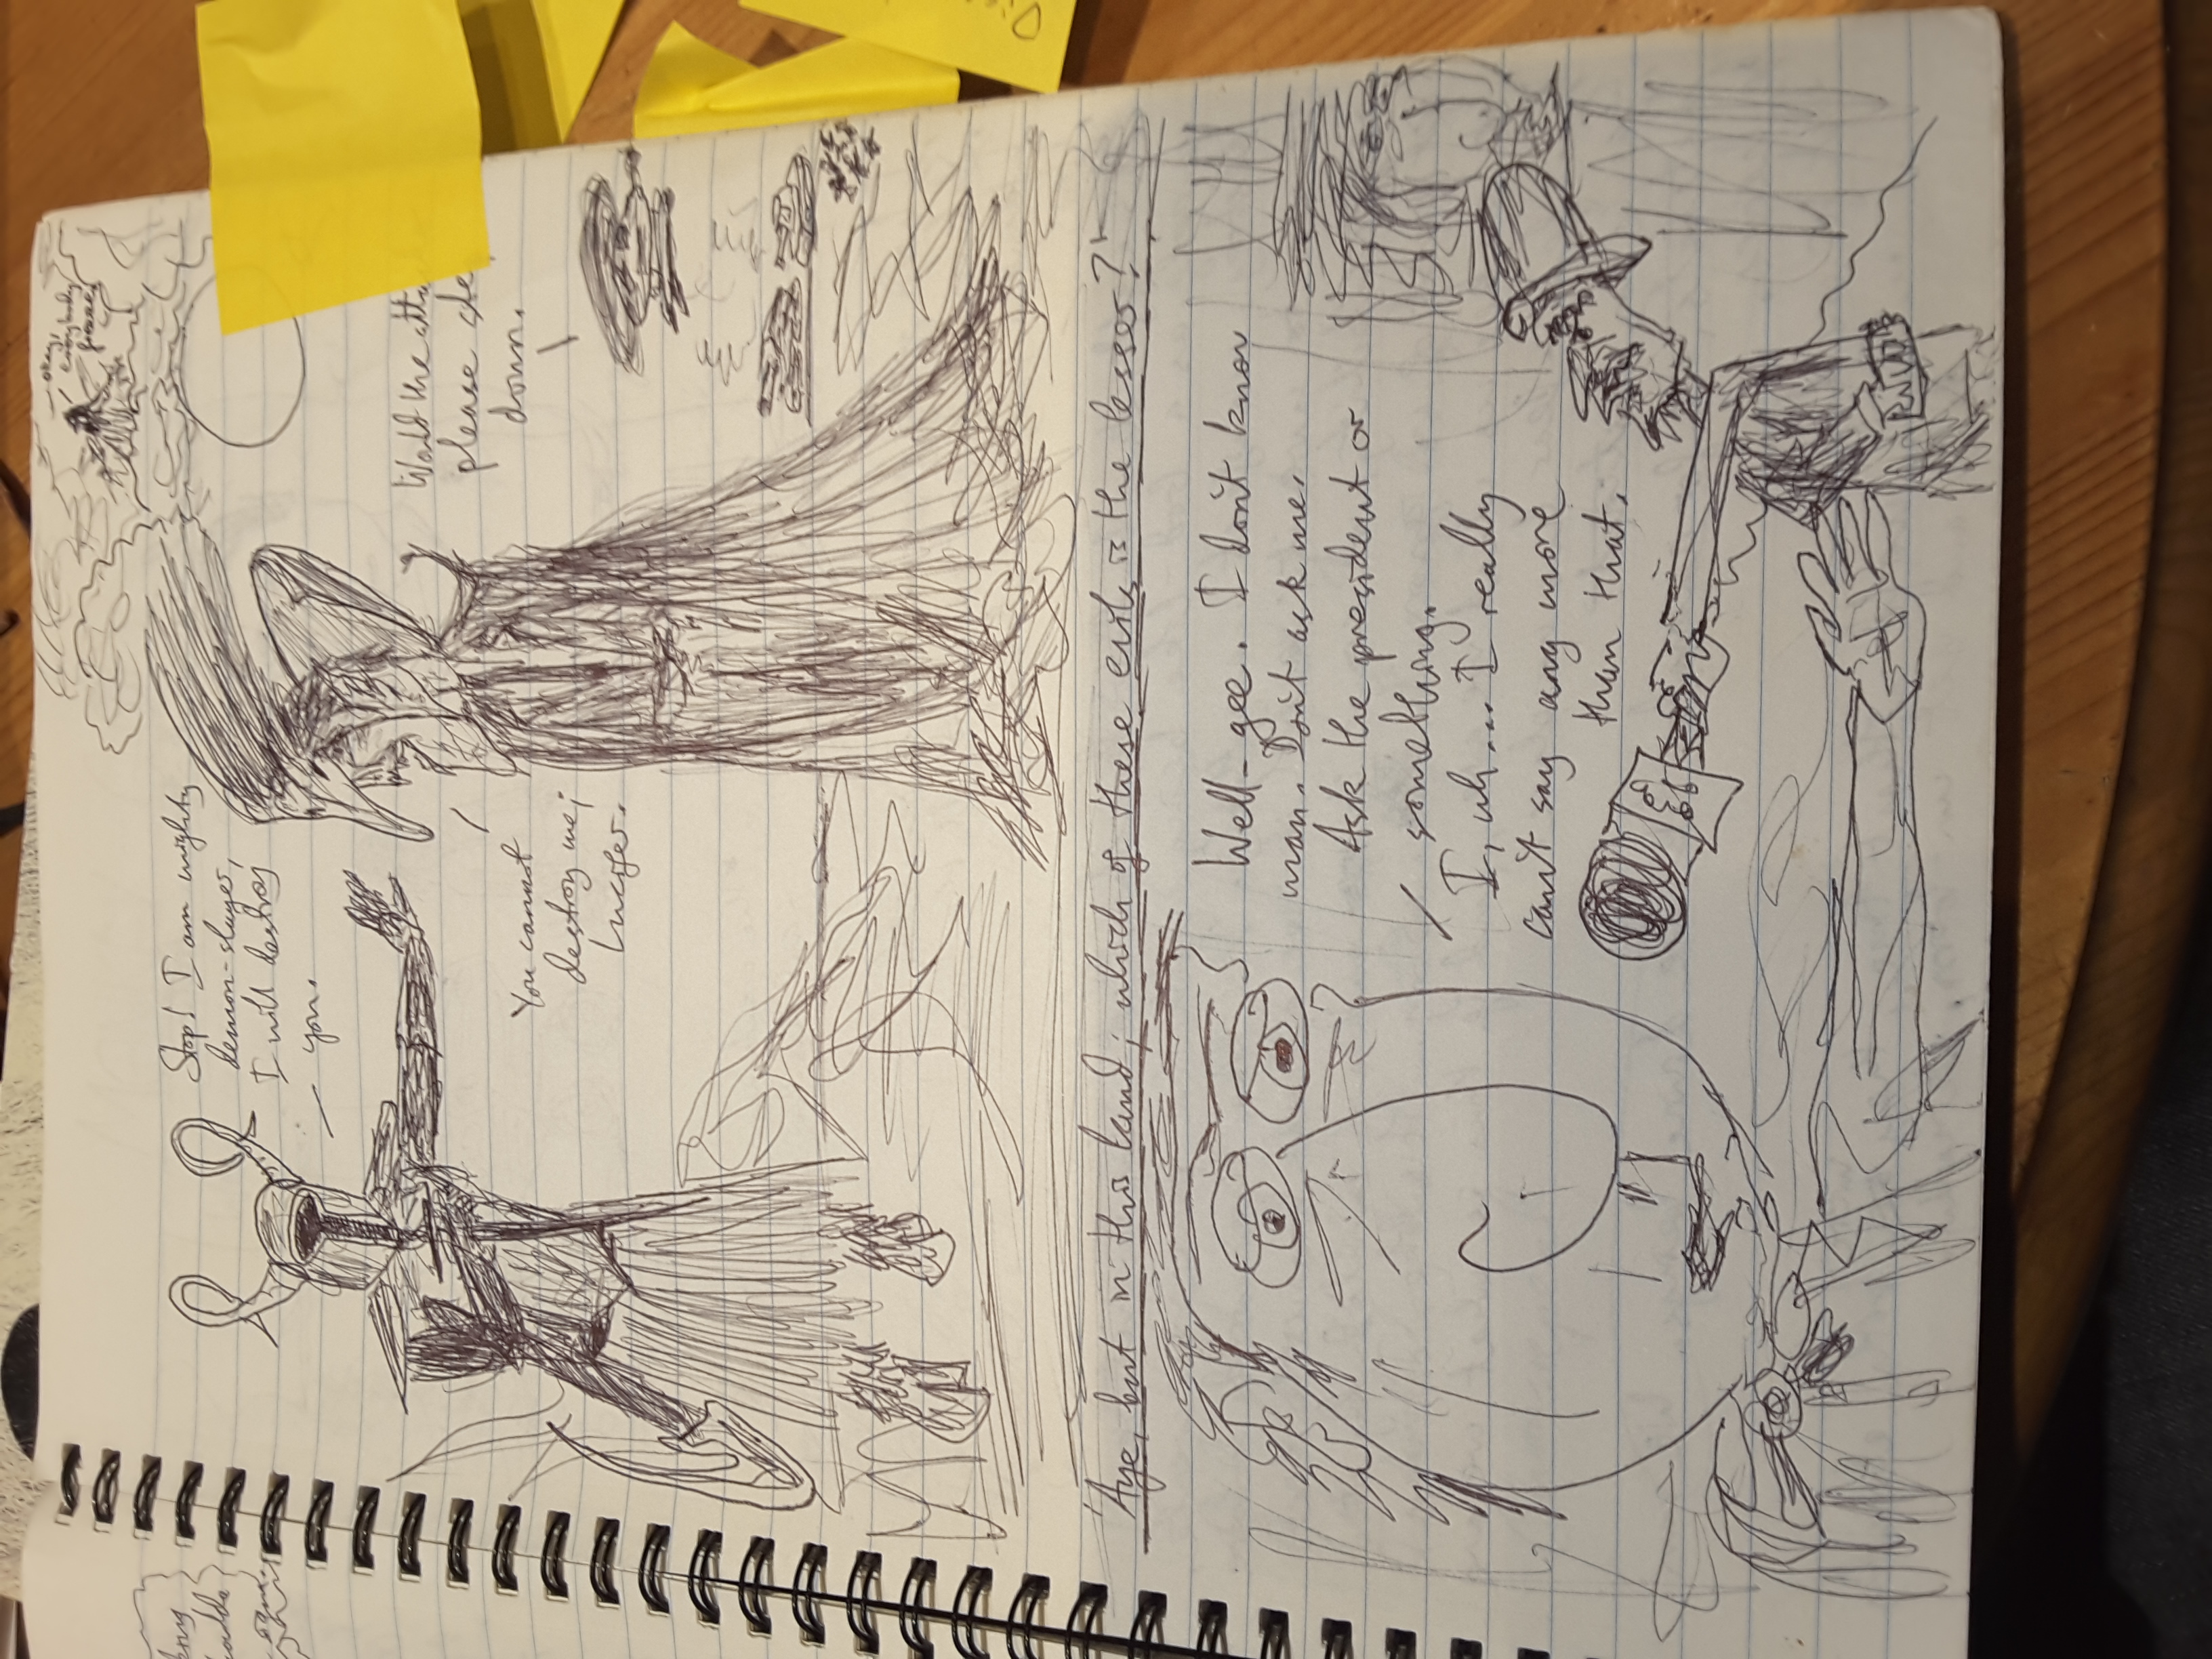 okay,
everybody
freeze.
Stop! I am mighty
demon-slayer,
I will destroy
you.
You cannot
destroy me;
Lucifer.
Would the
please
down.
"Aye, but in this land; which of these evils is the lesser?"
Well- gee. I don't know
man. Don't ask me.
Ask the president or
something.
I, uh... I really
can't say any more
than that.